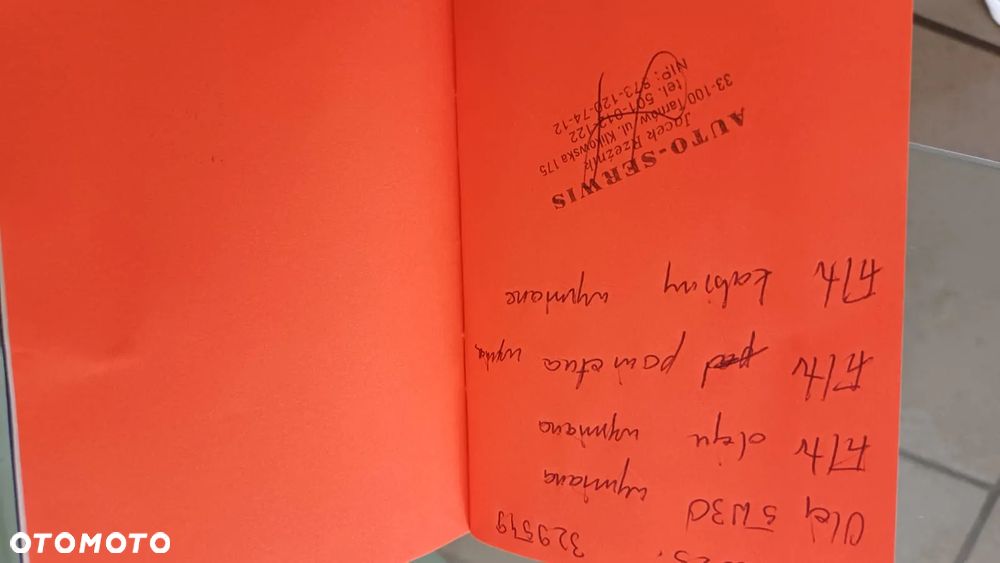 329549
Olej 5W30 wymiana
Filtr oleju wymiana
Filtr powietrza
Filtr kabiny wymiana
AUTO-SERWIS
Jacek Rzeźnik
33-100 Tarnów, ul. Klikowska 175
tel. 501-012-122
NIP: 873-120-74-12
OTOMOTO